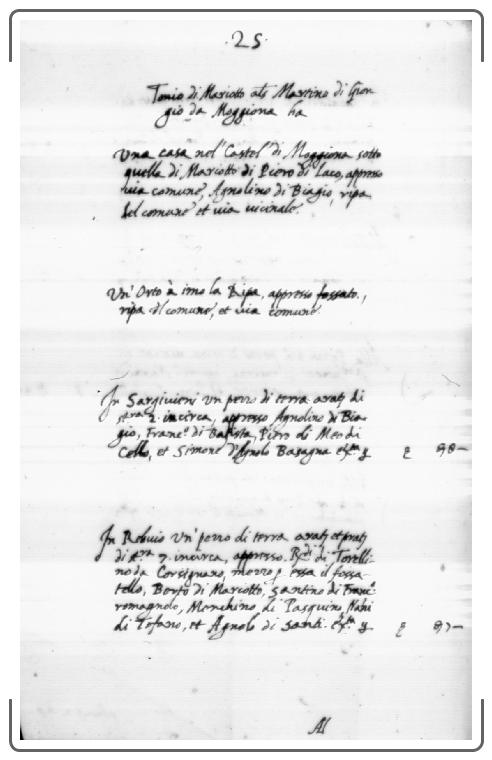 .25.
Tonio di Mariotto als Martino di Gior
gio da Moggiona ha
Una casa nel Castel' di Moggiona sotto
quella di Mariotto di Piero di Laco, appresso
via comune, Agnolino di Biagio, ripa
del comune et via vicinale.
Un' Orto à imo la Ripa, appresso fossato,
ripa del comune, et via comune.
In Sargivieni un pezzo di terra arat: di
2. incirca, appresso Agnolino di Bia-
gio, Franc.º di Batista, Piero di Meo di
Cello, et Simone d'Agnolo Basagna
In Robuio un' pezzo di terra arat: et prat:
di 7. incirca, appresso di Torelli-
no da Corsignano, mezzo essa il fossa-
tello, Berto di Mariotto, Santino di Franc.º
romagnolo, Menchino di Pasquino Nani
di Tofano, et Agnolo di Santi
Al